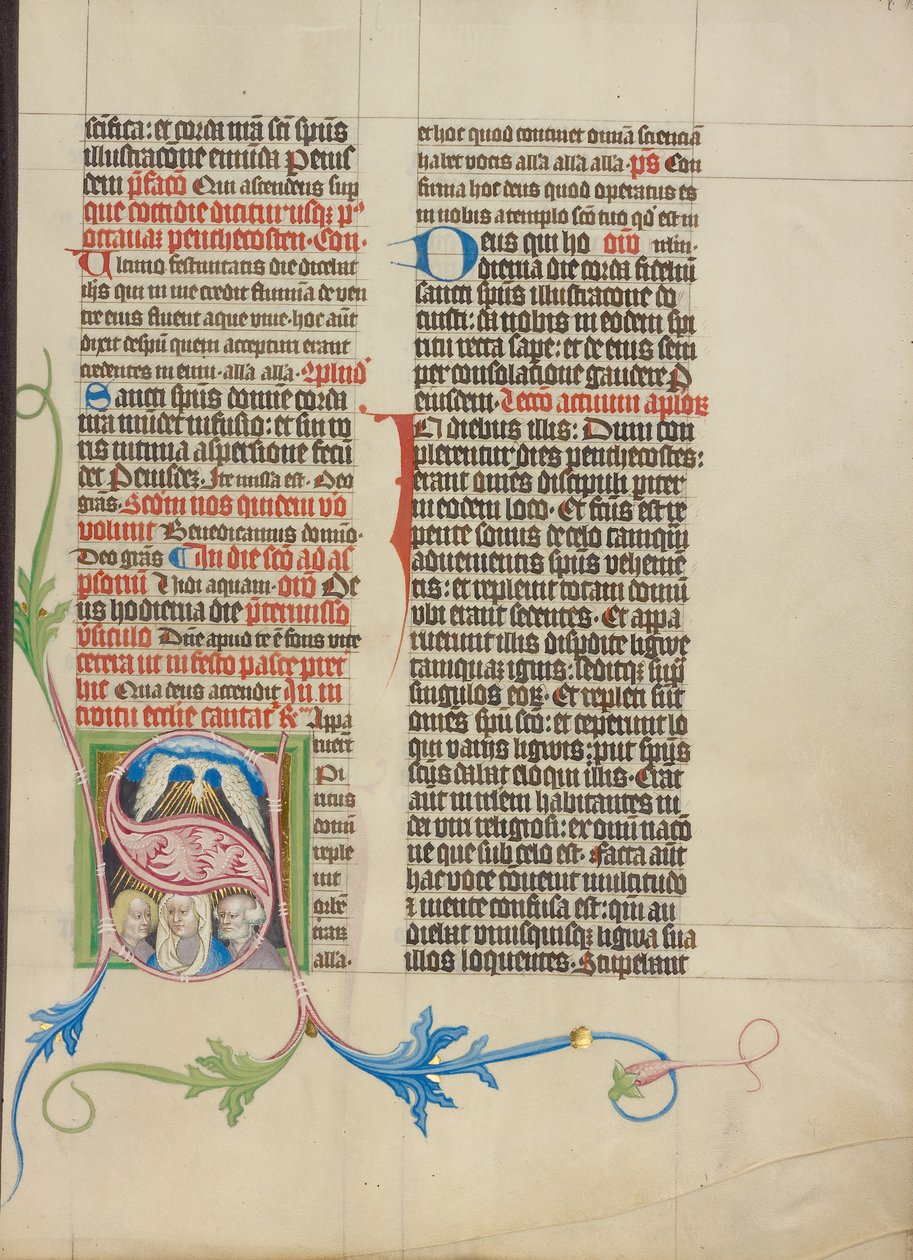 scifica: et corda nrā sci spūs
illustracōne emūda Penis
dem p̄facō Qui ascendens sup
que cottidie dicitur usqꝫ p̄
octauaꝫ penthecosten. Con.
Ultimo festiuitatis die dicebat
ihs qui in me credit flumīa de ven
tre eius fluent aque viue. hoc aūt
dixit despū quem accepturi erant
credentes in eum. alla alla.
Sancti spūs domīe corda
nra mūdet infusio: et sui ro
ris intima aspersione fecū
det Penisdeꝫ. Ite missa est. Deo
grās. Scdm nos quidem vo
volunt Benedicamus domīo.
Deo grās In die scō ad as
psionū Vidi aquam. orō De
us hodierna die p̄termisso
v̄siculo Dn̄e apud te ē fons vite
cetera ut in festo pasce preter
hic Qua deus accendit In in
troitu ecclie cantatr
S Appa
uert
Pi
ritus
domī
reple
uit
orbē
traꝝ
alla.
et hoc quod continet omīa scienciā
habet vocis alla alla alla. p̄s Con
firma hoc deus quod operatus es
in nobis a templo scō tuo qd est in
Deus qui ho orō
dierna die corda fideliū
sancti spūs illustracone do
cuisti: da nobis in eodem spi
ritu recta sape: et de eius sem
per consolacione gaudere P
eiusdem. Leccō actuum aplōꝝ
In diebus illis: Dum con
plerentur dies penthecostes:
erant om̄es discipuli pariter
in eodem loco. Et fcūs est re
pente sonus de celo tamqm̄
aduenientis spūs vehemē
tis: et repleuit totam domū
vbi erant sedentes. Et appa
ruerunt illis disptite ligwe
tamquaꝫ ignis: seditqꝫ sup
singulos eoꝝ. Et repleti sūt
omēs spū scō: et ceperunt lo
qui varijs ligwis: put spūs
scūs dabat eloqui illis. Erāt
aūt in irlem habitantes iu
dei viri religiosi: ex omī nacō
ne que sub celo est. Facta aūt
hac voce conuenit multitudo
ꝛ mente confusa est: qm̄ au
diebat vnusquisqꝫ ligwa sua
illos loquentes. Stupebant